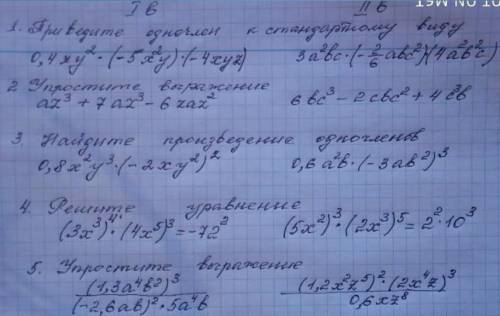 I в II в
1. Приведите одночлен к стандартному виду
0,4xy²·(-5x²y)(-4xyz) 3a²bc·(-2/6abc²)(4a²b²c)
2. Упростите выражение
ax³+7ax³-6xax² 6bc³-2cbc²+4c³b
3. Найдите произведение одночленов
0,8x²y³·(-2xy²)² 0,6a²b·(-3ab²)³
4. Решите уравнение
(3x³)⁴·(4x⁵)³=-72² (5x²)³·(2x³)⁵=2²·10³
5. Упростите выражение
(1,3a⁴b²)³ (1,2x²z⁵)²·(2x⁴z)³
(-2,6ab)²·5a⁴b 0,6xz⁸